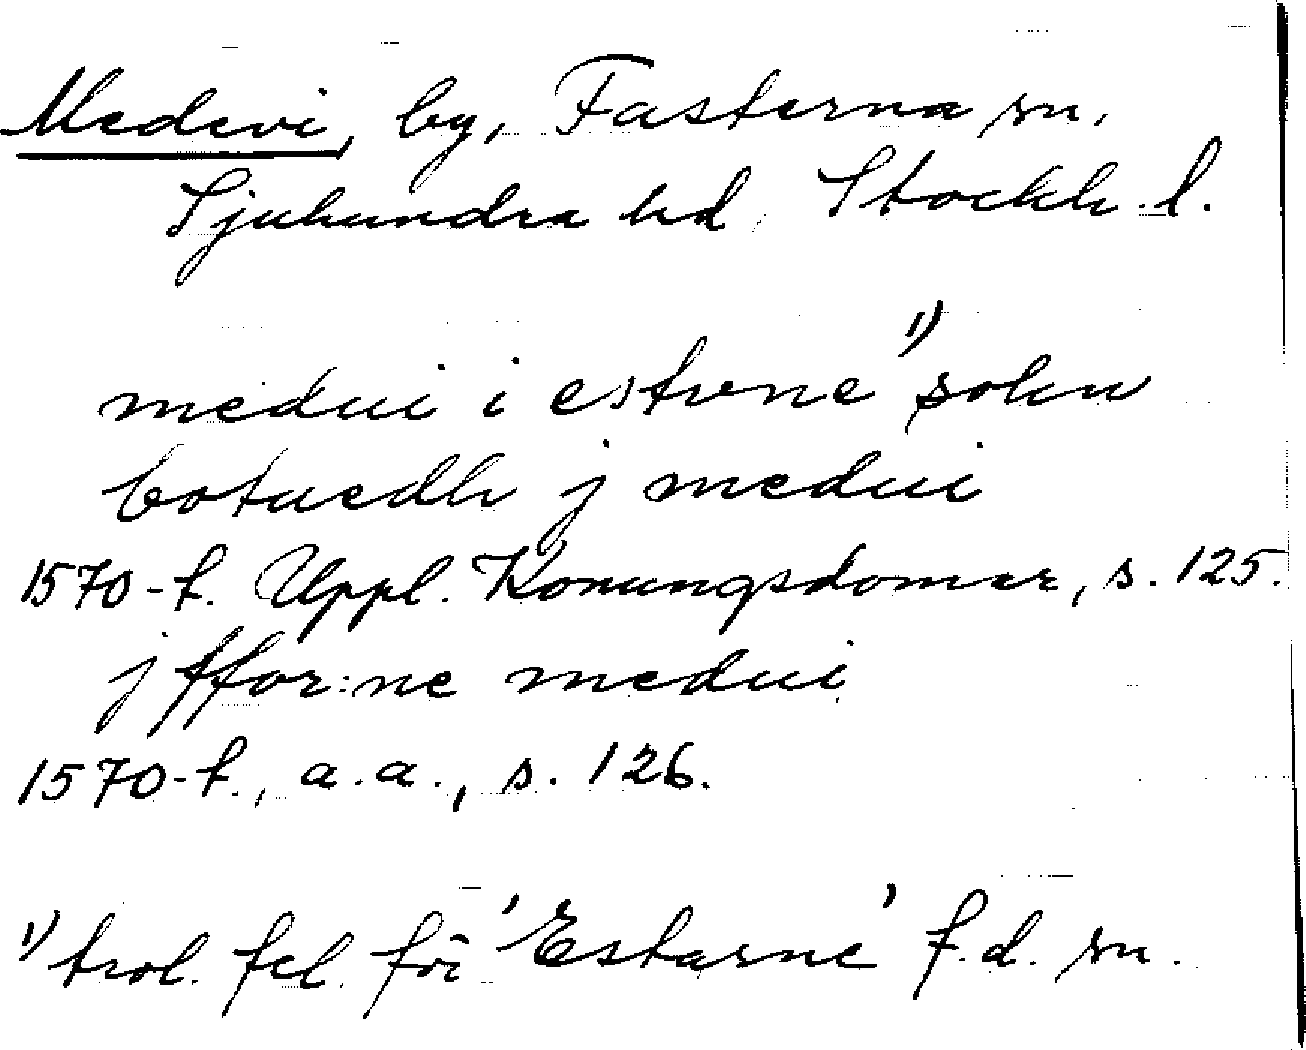 Medevi, by, Fasterna sn.
Sjuhundra hd, Stockh. l.
medui i estrne 1) sokn
botuedh j medui
1570-t. Uppl. Konungsdomar, s. 125.
j ffor:ne medui
1570-t., a.a., s. 126.
1) trol. fel. för 'Estarne' f.d. sn.